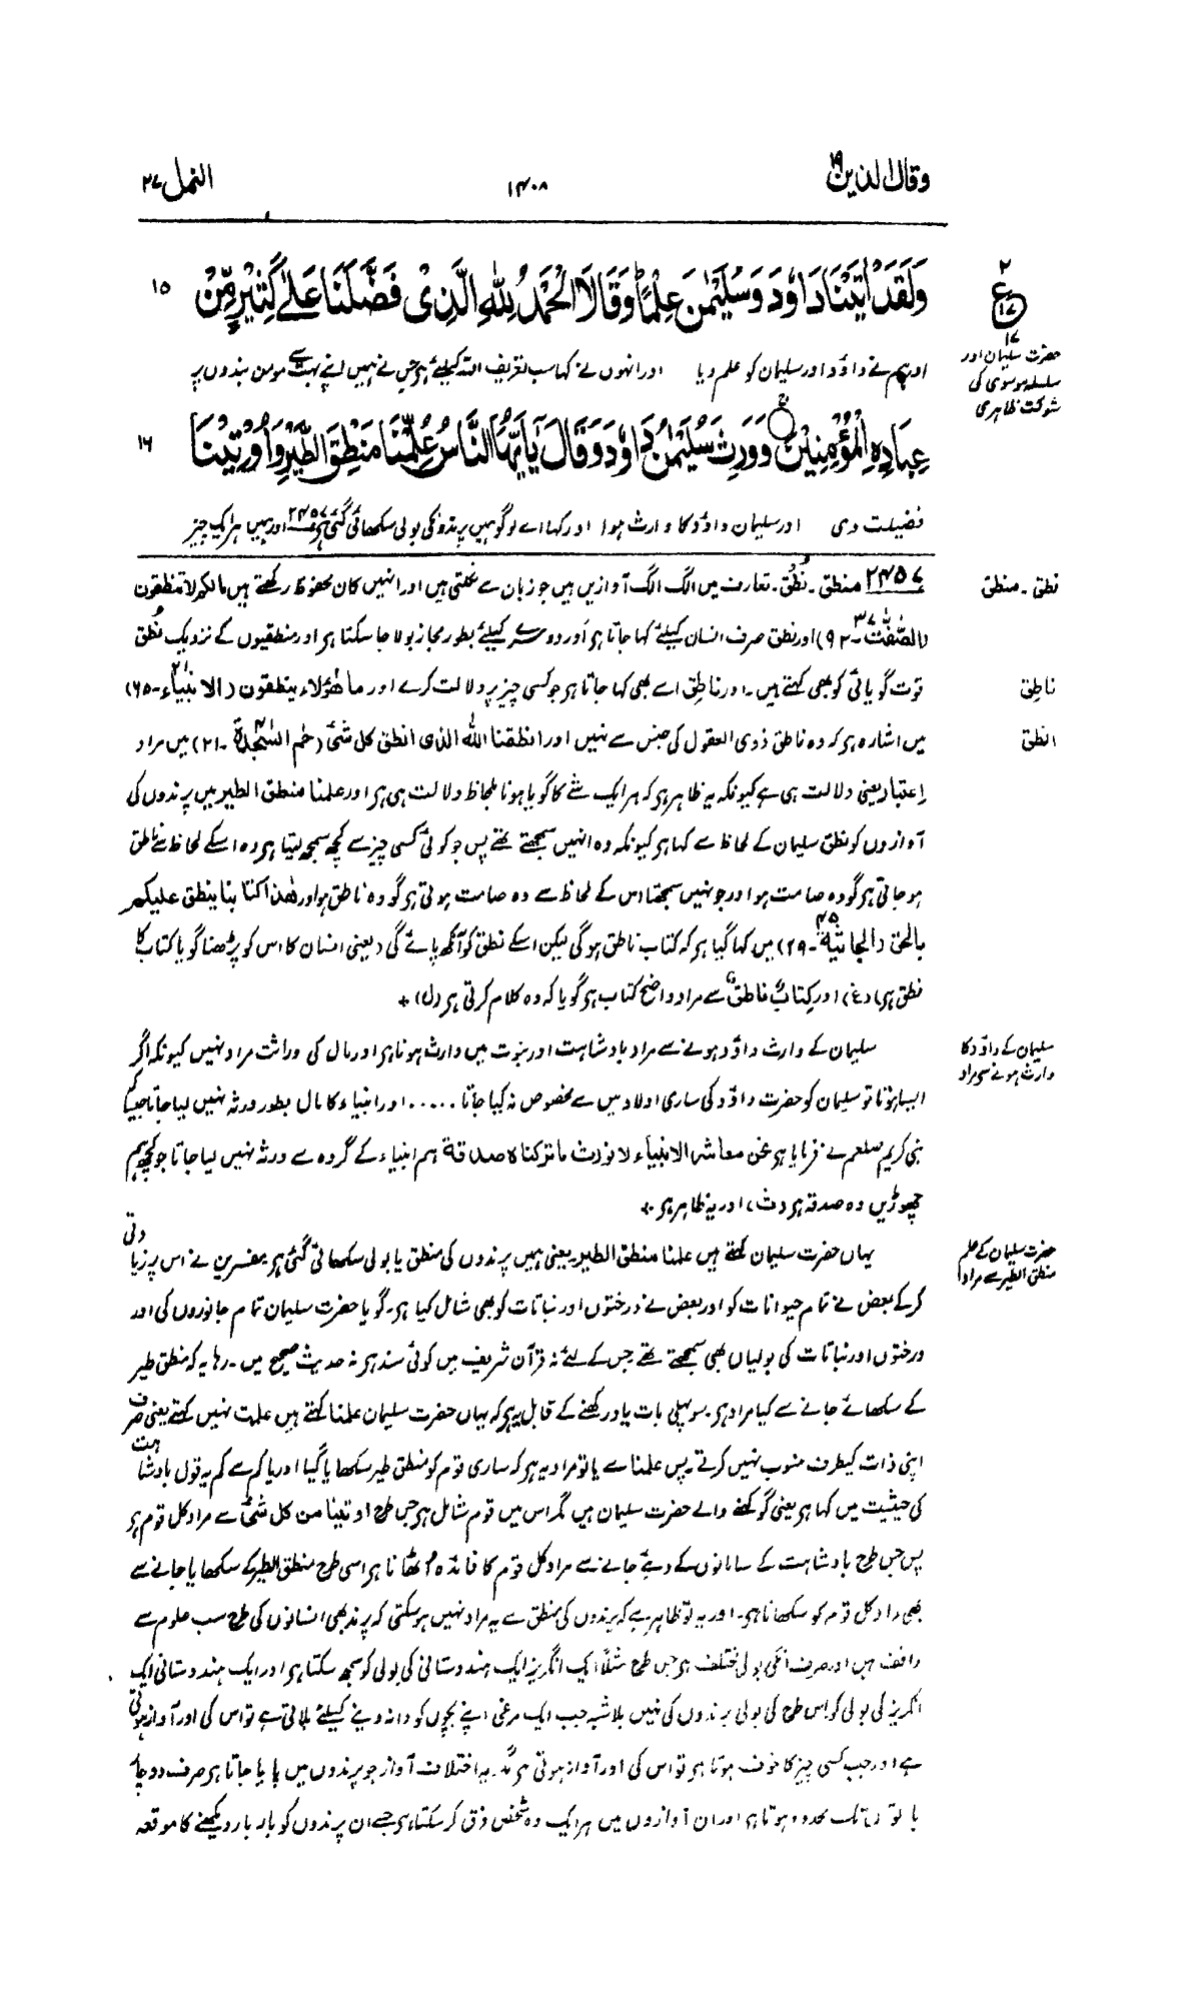 وقال الذین ۱۹
۱۴۰۸
النمل ۲۷
وَلَقَدْ اٰتَيْنَا دَاوٗدَ وَسُلَيْمٰنَ عِلْمًا ۚ وَقَالَا الْحَمْدُ لِلّٰهِ الَّذِىْ فَضَّلَنَا عَلٰى كَثِيْرٍ مِّنْ
۱۵
۲
ع
۱۷
۱۷
حضرت سلیمان اور
سلسلہ موسوی کی
شوکت ظاہری
اور ہم نے داؤد اور سلیمان کو علم دیا اور انہوں نے کہا سب تعریف اللہ کیلئے ہو جس نے ہمیں اپنے بہت سے مومن بندوں پر
عِبَادِهِ الْمُؤْمِنِيْنَ وَوَرِثَ سُلَيْمٰنُ دَاوٗدَ وَقَالَ يٰۤاَيُّهَا النَّاسُ عُلِّمْنَا مَنْطِقَ الطَّيْرِ وَاُوْتِيْنَا
۱۶
فضیلت دی اور سلیمان داؤد کا وارث ہوا اور کہا اے لوگو ہمیں پرندو کی بولی سکھائی گئی ہو ۲۴۵۷ اور ہمیں ہر ایک چیز
نطق ۔ منطق
۲۴۵۷ منطق ۔ نُطْق ۔ تعارف میں الگ الگ آوازیں ہیں جو زبان سے نکلتی ہیں اور انہیں کان محفوظ رکھتے ہیں مالکم لا تنطقون
(الصّٰفّٰت ۳۷ ۔ ۹۲) اور نطق صرف انسان کیلئے کہا جاتا ہو اور دوسرے کیلئے بطور مجاز بولا جا سکتا ہو اور منطقیوں کے نزدیک نُطق
ناطق
قوت گویائی کو بھی کہتے ہیں ۔ اور ناطِق اسے بھی کہا جاتا ہو جو کسی چیز پر دلالت کرے اور ما ھٰؤلاء ینطقون (الانبیاء ۲۱ ۔ ۶۵)
انطق
میں اشارہ ہو کہ وہ ناطق ذوی العقول کی جنس سے نہیں اور انطقنا اللہ الذی انطق کل شئ (حٰم السّجدة ۴۱ ۔ ۲۱) میں مراد
اعتبار یعنی دلالت ہی ہے کیونکہ یہ ظاہر ہو کہ ہر ایک شے کا گویا ہونا بلحاظ دلالت ہی ہو اور علمنا منطق الطیر میں پرندوں کی
آوازوں کو نطق سلیمان کے لحاظ سے کہا ہو کیونکہ وہ انہیں سمجھتے تھے پس جو کوئی کسی چیز سے کچھ سمجھ لیتا ہو وہ اسکے لحاظ سے ناطق
ہو جاتی ہو گو وہ صامت ہو اور جو نہیں سمجھتا اس کے لحاظ سے وہ صامت ہوتی ہو گو وہ ناطق ہو اور ھٰذا کتابنا ینطق علیکم
بالحق (الجاثیة ۴۵ ۔ ۲۹) میں کہا گیا ہو کہ کتاب ناطق ہو گی لیکن اسکے نطق کو آنکھ پائے گی (یعنی انسان کا اس کو پڑھنا گویا کتاب کا
نطق ہی) (غ) اور کتابٌ ناطقٌ سے مراد واضح کتاب ہو گویا کہ وہ کلام کرتی ہو (ل) +
سلیمان کے داؤد کا
وارث ہونے سی مراد
سلیمان کے وارث داؤد ہونے سے مراد بادشاہت اور نبوت میں وارث ہونا ہو اور مال کی وراثت مراد نہیں کیونکہ اگر
ایسا ہوتا تو سلیمان کو حضرت داؤد کی ساری اولاد میں سے مخصوص نہ کیا جاتا ..... اور انبیاء کا مال بطور ورثہ نہیں لیا جاتا جیسا کہ
نبی کریم صلعم نے فرمایا ہو نحن معاشر الانبیاء لا نورث ما ترکناہ صدقة ہم انبیاء کے گروہ سے ورثہ نہیں لیا جاتا جو کچھ ہم
چھوڑیں وہ صدقہ ہو (ث) اور یہ ظاہر ہو +
حضرت سلیمان کے علم
منطق الطیر سے مراد
یہاں حضرت سلیمان کہتے ہیں علمنا منطق الطیر یعنی ہمیں پرندوں کی منطق یا بولی سکھائی گئی ہو مفسرین نے اس پر زیادتی
کر کے بعض نے تمام حیوانات کو اور بعض نے درختوں اور نباتات کو بھی شامل کیا ہو ۔ گویا حضرت سلیمان تمام جانوروں کی اور
درختوں اور نباتات کی بولیاں بھی سمجھتے تھے جس کے لئے نہ قرآن شریف میں کوئی سند ہو نہ حدیث صحیح میں ۔ رہا یہ کہ منطق طیر
کے سکھائے جانے سے کیا مراد ہو ۔ سو پہلی بات یاد رکھنے کے قابل یہ ہو کہ یہاں حضرت سلیمان علمنا کہتے ہیں علمت نہیں کہتے یعنی صرف
اپنی ذات کیطرف منسوب نہیں کرتے ۔ پس علمنا سے یا تو مراد یہ ہو کہ ساری قوم کو منطق طیر سکھایا گیا اور یا کم سے کم یہ قول بادشاہت
کی حیثیت میں کہا ہو یعنی گو کہنے والے حضرت سلیمان ہیں مگر اس میں قوم شامل ہو جس طرح اوتینا من کل شئ سے مراد کل قوم ہو
پس جس طرح بادشاہت کے سامانوں کے دیئے جانے سے مراد کل قوم کا فائدہ اٹھانا ہو اسی طرح منطق الطیر کے سکھایا جانے سے
بھی مراد کل قوم کو سکھانا ہو ۔ اور یہ تو ظاہر ہے کہ پرندوں کی منطق سے یہ مراد نہیں ہو سکتی کہ پرند بھی انسانوں کی طرح سب علوم سے
واقف ہیں اور صرف انکی بولی مختلف ہو جس طرح مثلاً ایک انگریز ایک ہندوستانی کی بولی کو سمجھ سکتا ہو اور ایک ہندوستانی ایک
انگریز کی بولی کو اس طرح کی بولی پرندوں کی نہیں بلاشبہ جب ایک مرغی اپنے بچوں کو دانہ دینے کیلئے بلاتی ہے تو اس کی اور آواز ہوتی
ہے اور جب کسی چیز کا خوف ہوتا ہو تو اس کی اور آواز ہوتی ہو مگر یہ اختلاف آواز جو پرندوں میں پایا جاتا ہو صرف دو چار
باتوں تک محدود ہوتا ہو اور ان آوازوں میں ہر ایک وہ شخص فرق کر سکتا ہو جسے ان پرندوں کو بار بار دیکھنے کا موقعہ